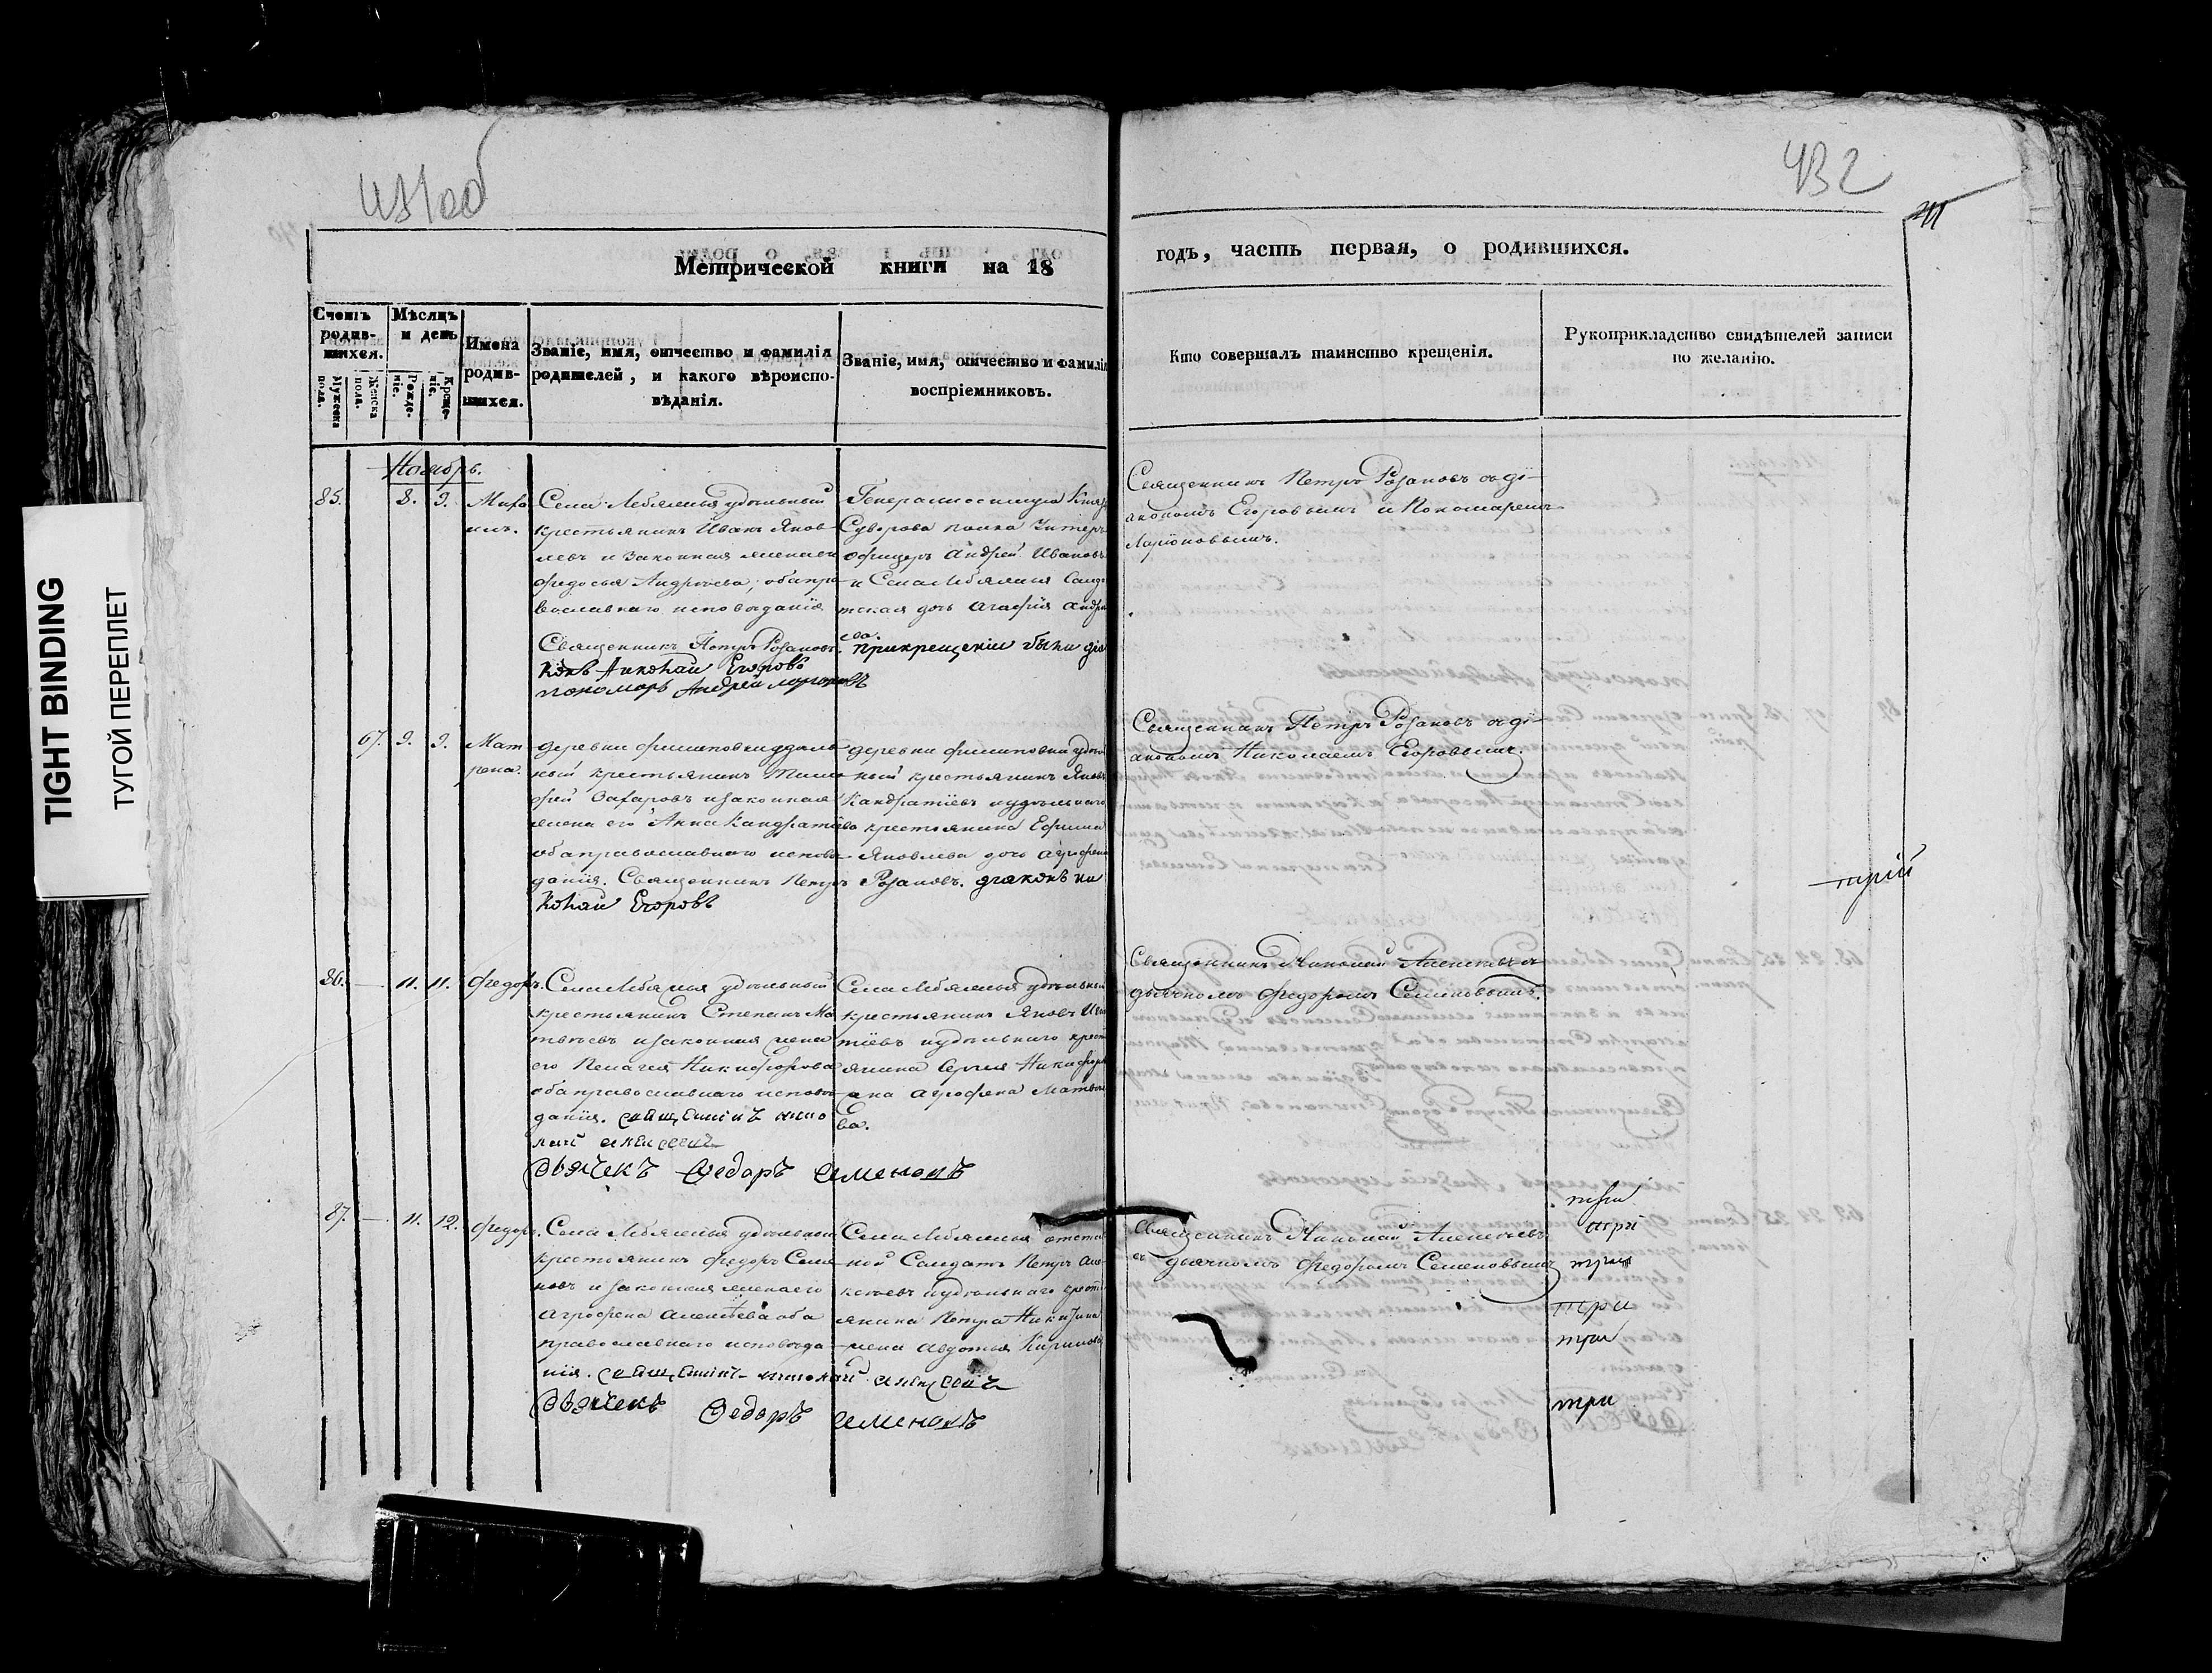 TIGHT BINDING
ТУГОЙ ПЕРЕПЛЕТ
432
Метрической книги на 18
годъ, часть первая, о родившихся.
Счетъ родив-шихся.
Мужеска пола.
Женска пола.
Мѣсяцъ и день
Рожде-ніе.
Креще-ніе.
Имена родив-шихся.
Званіе, имя, отчество и фамилія
родителей, и какого вѣроиспо-
вѣданія.
Званіе, имя, отчество и фамилія
воспріемниковъ.
Кто совершалъ таинство крещенія.
Рукоприкладство свидѣтелей записи
по желанію.
Ноябрь.
85. 8. 9. Миха
илъ.
Села Лебяжья удѣльный
крестьянинъ Иванъ Яков-
левъ и законная жена его
Федосья Андреева, оба пра
вославнаго исповѣданія
Священникъ Петръ Розановъ.
Николай Егоровъ
пономарь Андрей
Генералиссимуса Князя
Суворова полка Унтеръ
Офицеръ Андрей Ивановъ
и Села Лебяжья Салда
тская дочь Агафія Андре
ева. при крещеніи были діа
Священникъ Петръ Розановъ съ дi-
акономъ Егоровымъ и Пономаремъ
Ларіоновымъ.
67. 9. 9. Мат
рена.
деревни Филиповки удѣль
ный крестьянинъ Тимо
фей Захаровъ и законная
жена его Анна Кандратіева
оба православнаго исповѣ
данія. Священникъ Петръ Розановъ. діаконъ Ни
колай Егоровъ
деревни Филиповки удѣль
ный крестьянинъ Яковъ
Кандратіевъ и удѣльнаго
крестьянина Ефима
Яковлева дочь Агрофена
Священникъ Петръ Розановъ съ дi-
акономъ Николаемъ Егоровымъ.
86. — 11. 11. Федоръ.
Села Лебяжья удѣльный
крестьянинъ Степанъ Ма
твѣевъ и законная жена
его Пелагея Никифорова
оба православнаго исповѣ
данія. священникъ нико
лай алексеевъ
дьячекъ Федоръ Семеновъ
Села Лебяжья удѣльный
крестьянинъ Яковъ
и удѣльнаго крест
янина Сергея Никифоро
Агрофена Матвѣе
ва.
Священникъ Николай Алексѣевъ съ
дьячкомъ Федоромъ Семеновымъ.
87. — 11. 12. Федоръ.
Села Лебяжья удѣльной
крестьянинъ Федоръ Семе
новъ и законная жена его
Агрофена Алексѣева оба
православнаго исповѣда
нія. священникъ николай алексеевъ
дьячекъ Федоръ Семеновъ
Села Лебяжья отста
ной Салдатъ Петръ Але
ксѣевъ и удѣльнаго крест
янина Петра Никитина
жена Авдотья Кирилова
Священникъ Николай Алексѣевъ
съ дьячкомъ Федоромъ Семеновымъ
три
три
три